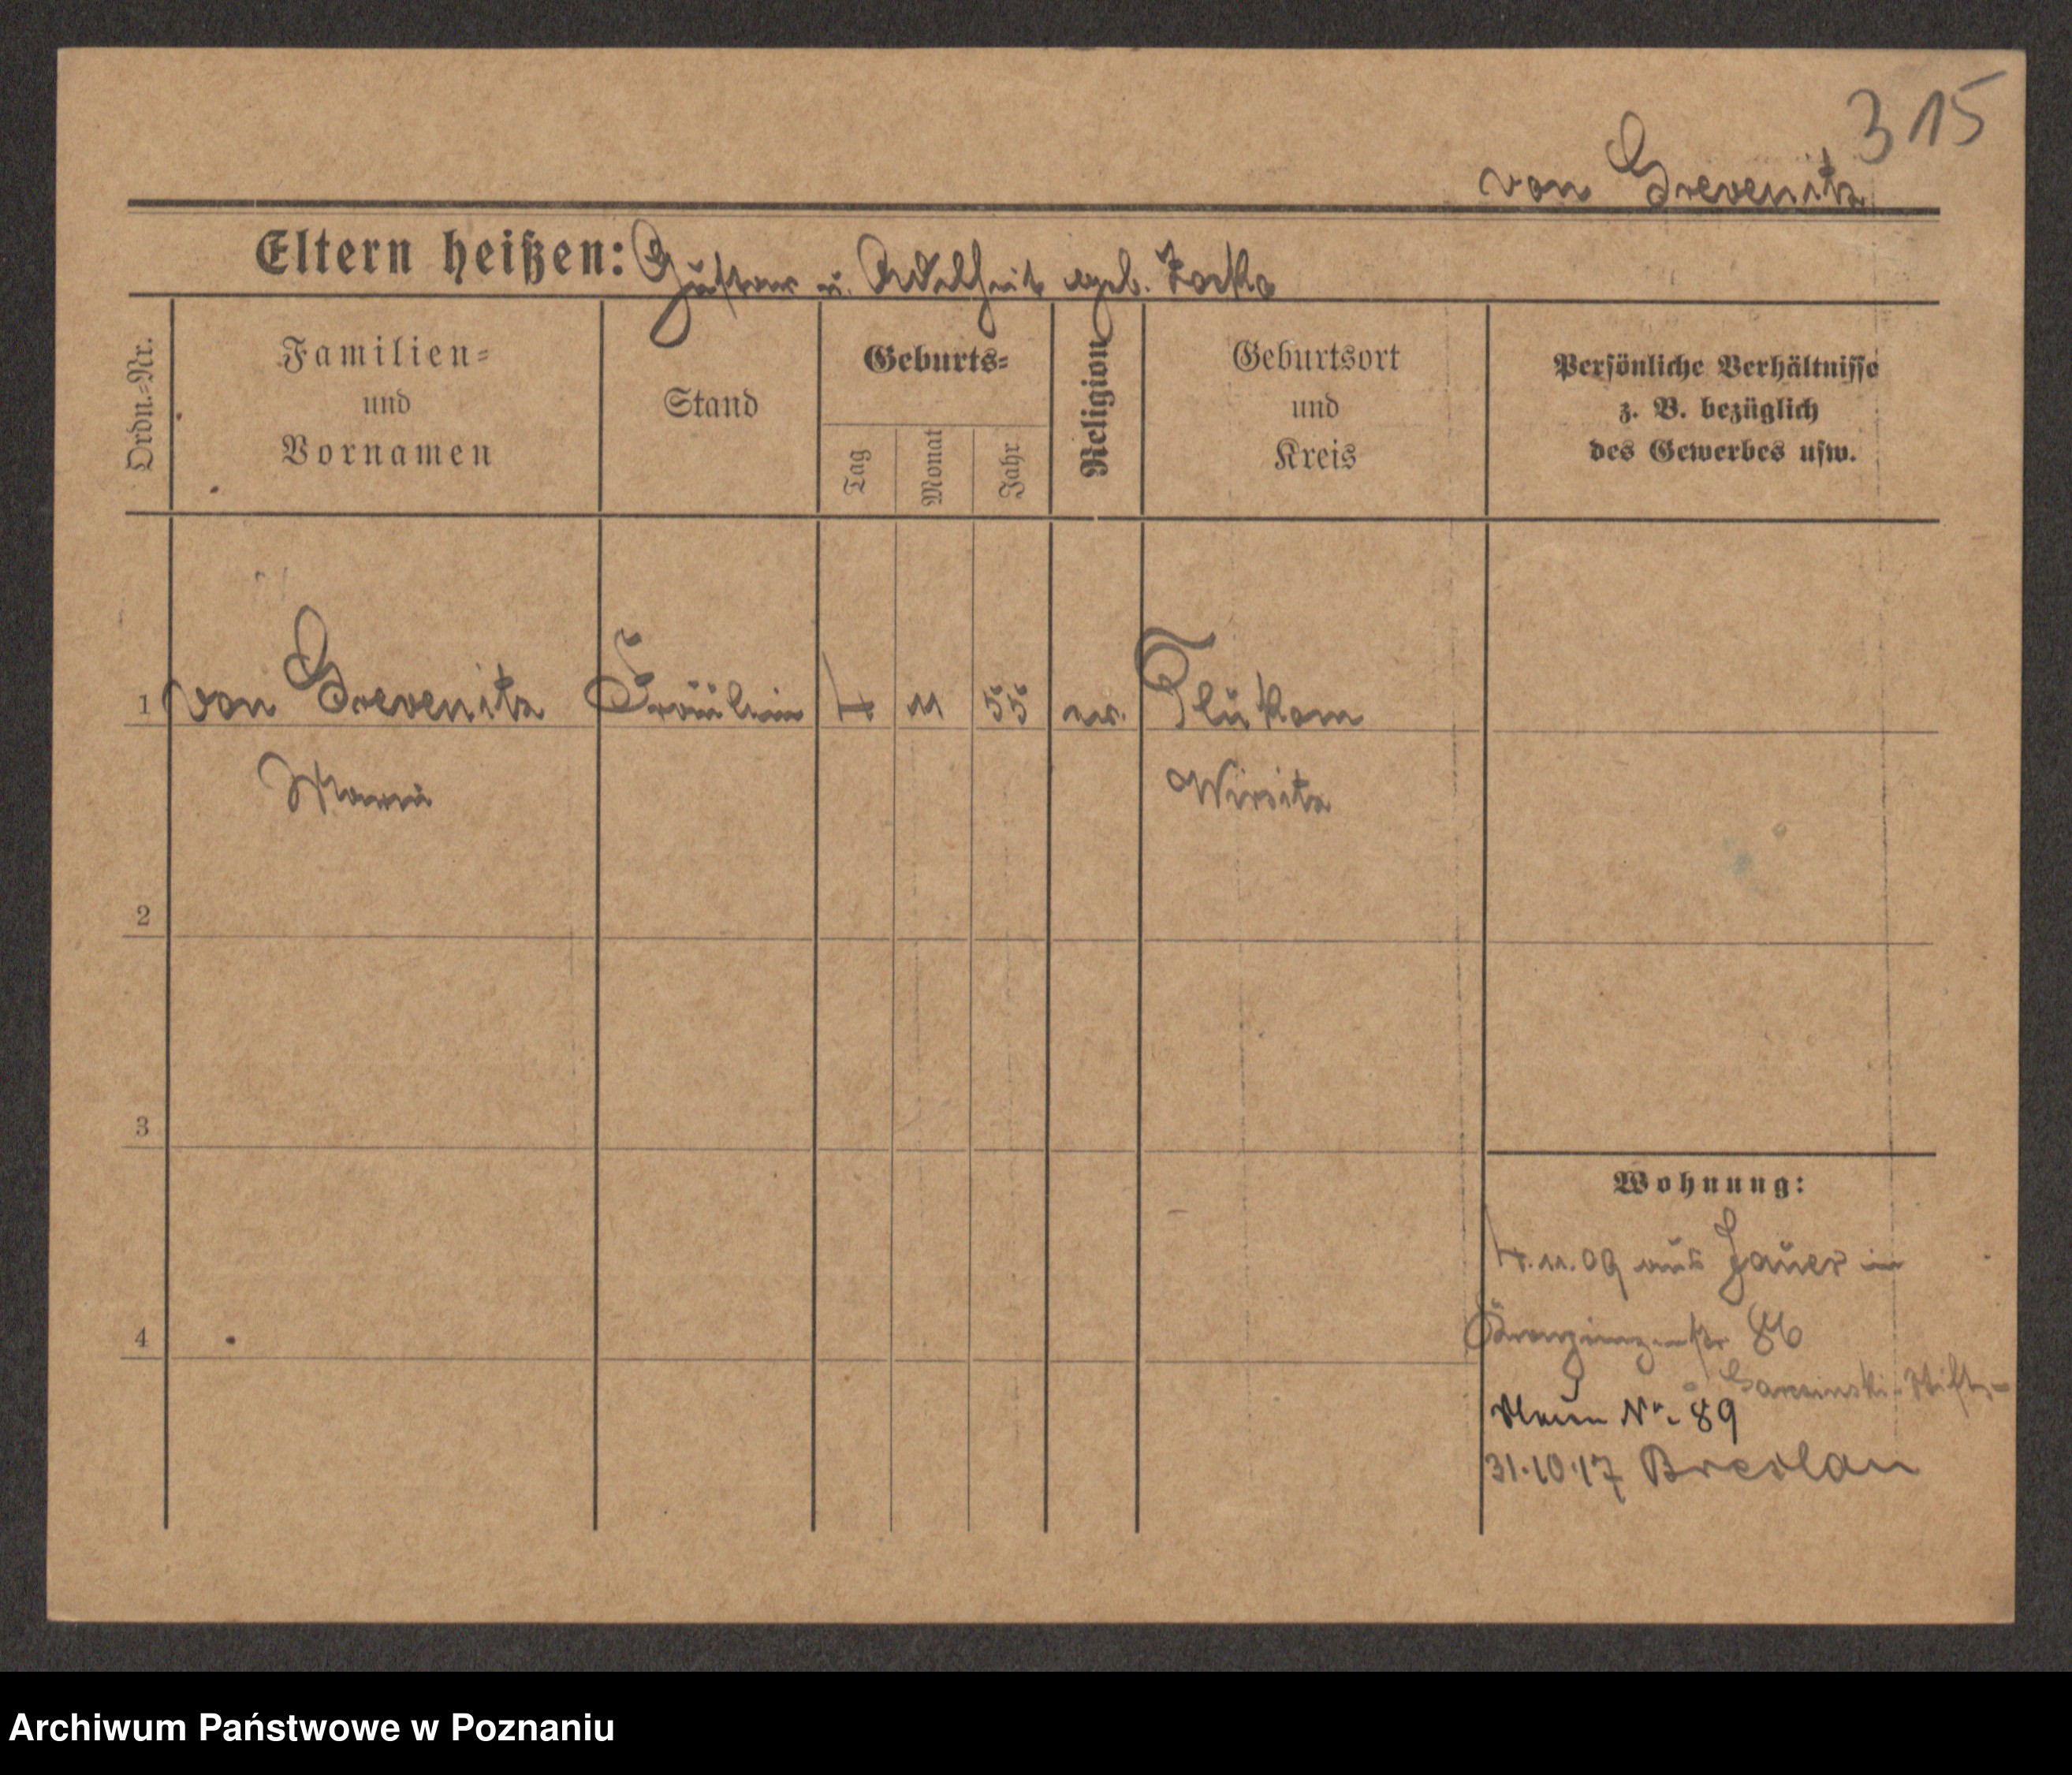 315
von Grevenitz
Eltern heißen: Gustav u. Adelheit geb.
Ordn.-Nr.
Familien-
und
Vornamen
Stand
Geburts-
Tag
Monat
Jahr
Religion
Geburtsort
und
Kreis
Persönliche Verhältnisse
z. B. bezüglich
des Gewerbes usw.
1 von Grevenitz Fräulein 4 11 55 ev. Flukom
Marie Wirsitz
2
3
Wohnung:
4.11.09 aus Jauer in
4
86
Garczinski-Stift-
Neue Nr. 89
31.10.17 Breslau
Archiwum Państwowe w Poznaniu